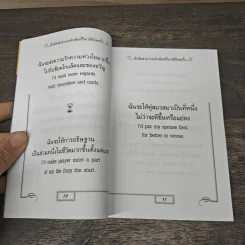 ฉันจะส่งความรักความห่วงใยมากขึ้น
ไปกับช็อกโกแลตและของขวัญ
I'd send more regards
with chocolates and cards.
ฉันจะให้การอธิษฐาน
เป็นส่วนหนึ่งในชีวิตมากขึ้นตั้งแต่แรก
I'd make prayer more a part
of my life from the start.
ฉันจะให้คู่สมรสมาเป็นที่หนึ่ง
ไม่ว่าจะดีขึ้นหรือแย่ลง
I'd put my spouse first,
for better or worse.